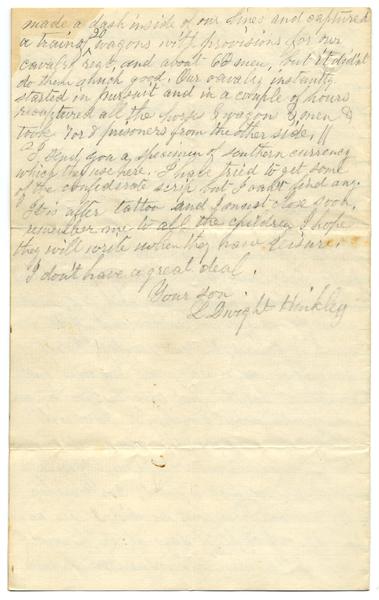 made a dash inside of our lines and captured
a train of 20 wagons with provisions for our
cavalry regt, and about 60 men, but it didn't
do them much good. Our cavalry instantly
started in pursuit and in a couple of hours
recaptured all the horses & wagon & men &
took 7 or 8 prisoners from the other side. //
I send you a specimen of southern currency
which they use here. I have tried to get some
of the confederate scrip but I can't find any.
It is after tattoo and I must close soon.
remember me to all the children I hope
they will write when they have leisure.
I don't have a great deal.
Your son
L Dwight Hinkley